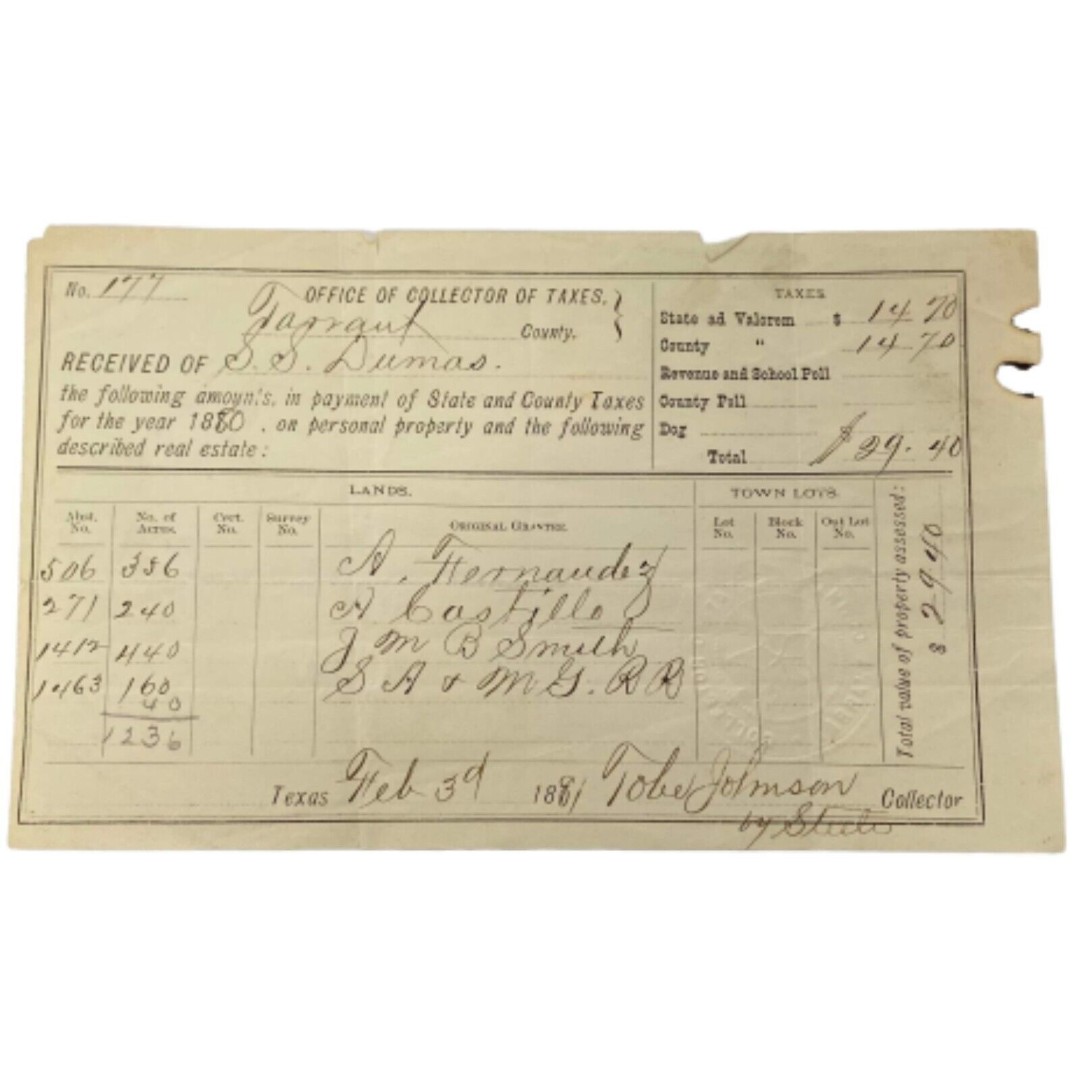 No. 177
OFFICE OF COLLECTOR OF TAXES,
Tarrant County.
RECEIVED OF S. S. Dumas.
the following amounts, in payment of State and County Taxes
for the year 1880, on personal property and the following
described real estate:
TAXES
State ad Valorem $ 14 70
County " 14.70
Revenue and School Poll
County Poll
Dog
Total $29.40
LANDS.
TOWN LOTS.
Abst. No. No. of Acres. Cert. No. Survey No. ORIGINAL GRANTEE. Lot No. Block No. Out Lot No.
506 356 A. Fernandez
271 240 A Castillo
1412 440 J M B Smith
1463 160 S A & M G. R R
40
1236
Total value of property assessed: $ 2940
Texas Feb 3d 1881 Tobe Johnson Collector
by Steele